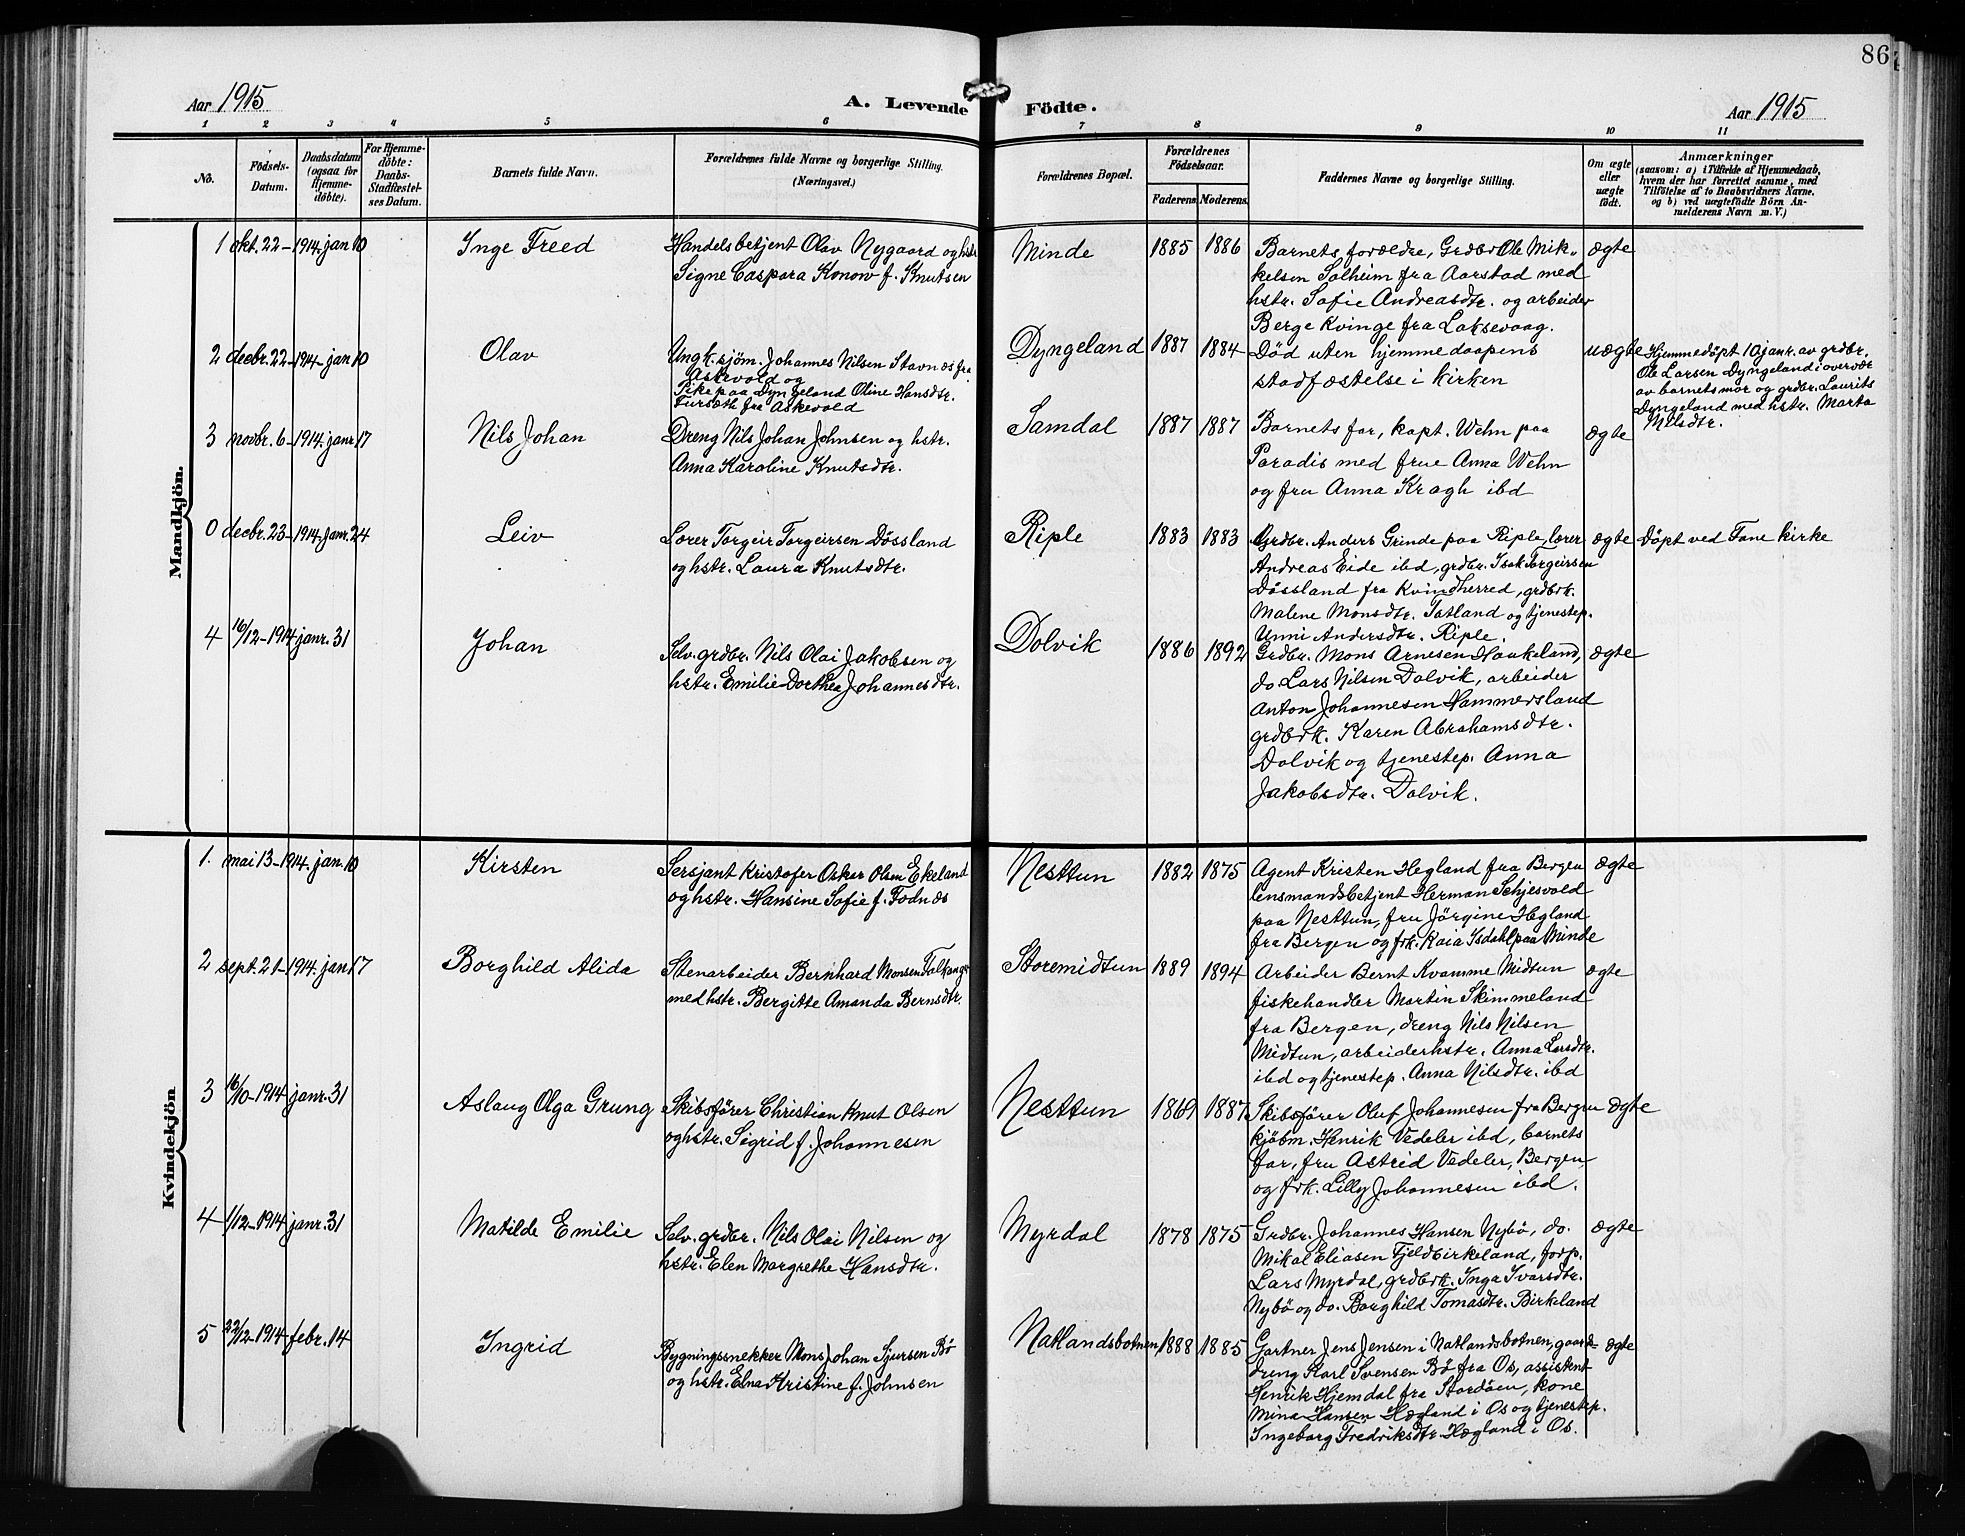 86
Aar 1915
A. Levende
Födte.
Aar 1915
1 2 3 4 5 6 7 8 9 10 11
No.
Födsels-
Datum.
Daabsdatum
(ogsaa for
Hjemme-
döbte).
For Hjemme-
döbte:
Daabs-
Stadfæstel-
ses Datum.
Barnets fulde Navn.
Forældrenes fulde Navne og borgerlige Stilling.
(Næringsvei.)
Forældrenes Bopæl.
Forældrenes
Födselsaar.
Faderens.
Moderens.
Faddernes Navne og borgerlige Stilling.
Om ægte
eller
uægte
födt.
Anmærkninger
(saasom: a) i Tilfælde af Hjemmedaab,
hvem der har forrettet samme, med
Tilföielse af to Daabsvidners Navne,
og b) ved uægtefödte Börn An-
melderens Navn m. V.)
Mandkjön.
1 okt. 22-1914. jan 10
Inge Freed
Handelsbetjent Olav Nygaard og hstr.
Signe Caspara Konow f. Knutsen
Minde
1885 1886
Barnets forældre, Grdbr Ole Mik-
kelsen Solheim fra Aarstad med
hstr. Sofie Andreasdtr. og arbeider
Berge Kvinge fra Laksevaag.
ægte
2 decbr. 22-1914- jan 10
Olav
Ungk. sjöm. Johannes Nilsen Stavnæs fra
Askevold og
Pike paa Dyngeland Oline Hansdtr.
Fursæth fra Askevold
Dyngeland
1887 1884
Död uten hjemmedaapens
stadfæstelse i kirken
uægte
Hjemmedöpt 10 janr. av grdbr.
Ole Larsen Dyngeland i overvær
av barnets mor og grdbr. Laurits
Dyngeland med hstr. Marta
Nilsdtr.
3 novbr. 6-1914. janr 17
Nils Johan
Dreng Nils Johan Johnsen og hstr.
Anna Karoline Knutsdtr.
Samdal
1887 1887
Barnets far, kapt. Wehn paa
Paradis med frue Anna Wehn
og fru Anna Kragh ibd
ægte
0 decbr. 23-1914- janr. 24
Leiv
Lærer Torgeir Torgeirsen Døssland
og hstr. Laura Knutsdtr.
Riple
1883 1883
Grdbr. Anders Grinde paa Riple, lærer
Andreas Eide ibd, grdbr. Isak Torgeirssen
Døssland fra Kvindherred, grdbrk.
Malene Monsdtr. Tatland og tjenestep.
Unni Andersdtr. Riple.
ægte
Döpt ved Fane kirke
4 16/12-1914 janr. 31
Johan
Selv. grdbr. Nils Olai Jakobsen og
hstr. Emilie Dorthea Johannesdtr.
Dolvik
1886 1892
Grdbr. Mons Arnesen Haukeland,
do Lars Nilsen Dolvik, arbeider
Anton Johannesen Hammersland
grdbrk. Karen Abrahamsdtr.
Dolvik og tjenestep. Anna
Jakobsdtr. Dolvik.
ægte
Kvindekjön
1. mai 13-1914. jan. 10
Kirsten
Sersjant Kristofer Oskar Olsen Ekeland
og hstr. Hansine Sofie f. Fodnæs
Nesttun
1882 1875
Agent Kristen Hegland fra Bergen
lensmandsbetjent Herman Schjesvold
paa Nesttun, fru Jörgine Hegland
fra Bergen og frk. Kaia Isdahl paa Minde
ægte
2 sept. 21-1914. jan 17
Borghild Alida
Stenarbeider Bernhard Monsen Falkanger
med hstr. Bergitte Amanda Bernsdtr.
Storemidtun
1889 1894
Arbeider Bernt Kvamme Midtun
fiskehandler Martin Skimmeland
fra Bergen, dreng Nils Nilsen
Midtun, arbeiderhstr. Anna Larsdtr.
ibd og tjenestep. Anna Nilsdtr. ibd
ægte
3 16/10-1914 janr. 31
Aslaug Olga Grung
Skibsfører Christian Knut Olsen
og hstr. Sigrid f. Johannesen
Nesttun
1869 1887
Skibsfører Oluf Johannesen fra Bergen
kjøbm. Henrik Vedeler ibd, barnets
far, fru Astrid Vedeler, Bergen,
og frk. Lilly Johannesen ibd.
ægte
4 1/12-1914 janr. 31
Matilde Emilie
Selv. grdbr. Nils Olai Nilsen og
hstr. Elen Margrethe Hansdtr.
Myrdal
1878 1875
Grdbr. Johannes Hansen Nybö, do.
Mikal Eliasen Fjeldbirkeland, forp.
Lars Myrdal, grdbrk. Inga Ivarsdtr.
Nybö og do. Borghild Tomasdtr. Birkeland
ægte
5 22/12-1914 febr. 14
Ingrid
Bygningssnekker Mons Johan Sjursen Bö
og hstr. Elna Kristine f. Johnsen
Natlandsbotnen
1888 1885
Gartner Jens Jensen i Natlandsbotnen, gaard-
dreng Karl Svensen Bö fra Os, assistent
Henrik Hjemdal fra Stordöen, kone
Mina Hansen Hægland i Os og tjenestep.
Ingeborg Fredriksdtr Hægland i Os.
ægte